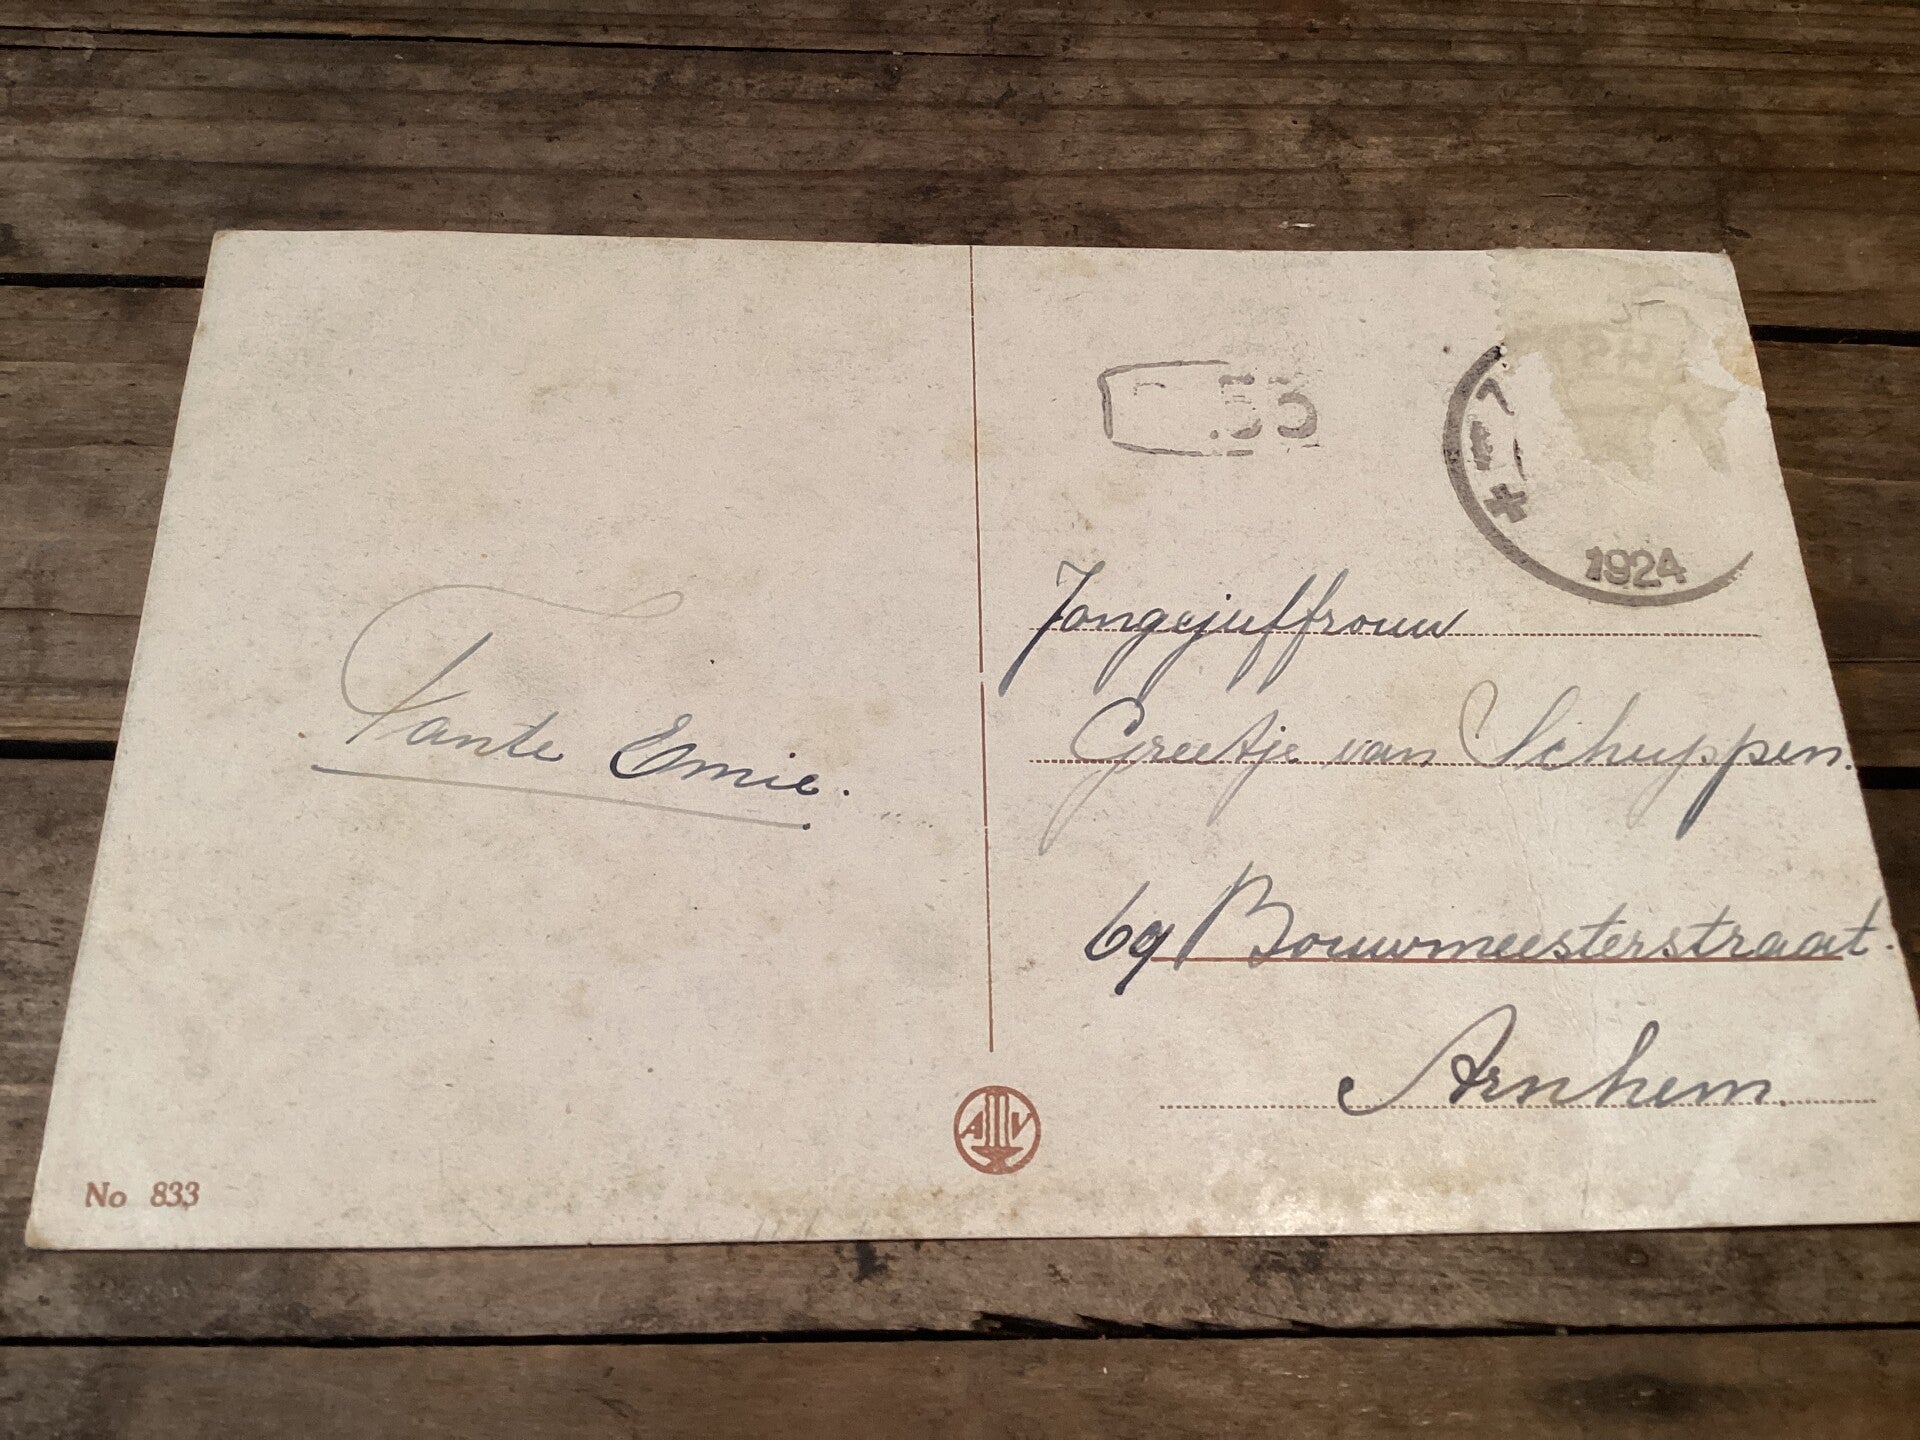 Tante Emie.
No 833
53
1924
Jongejuffrouw
Greetje van Schuppen.
69 Bouwmeesterstraat.
Arnhem.
A V